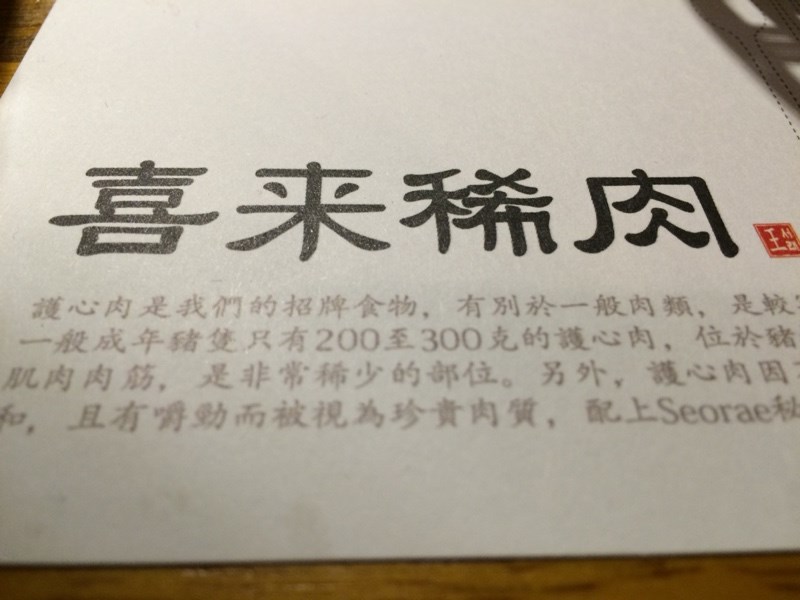 喜来稀肉
王 서래
護心肉是我們的招牌食物，有別於一般肉類，是較
一般成年豬隻只有200至300克的護心肉，位於豬
肌肉肉筋，是非常稀少的部位。另外，護心肉因
和，且有嚼勁而被視為珍貴肉質，配上Seorae秘